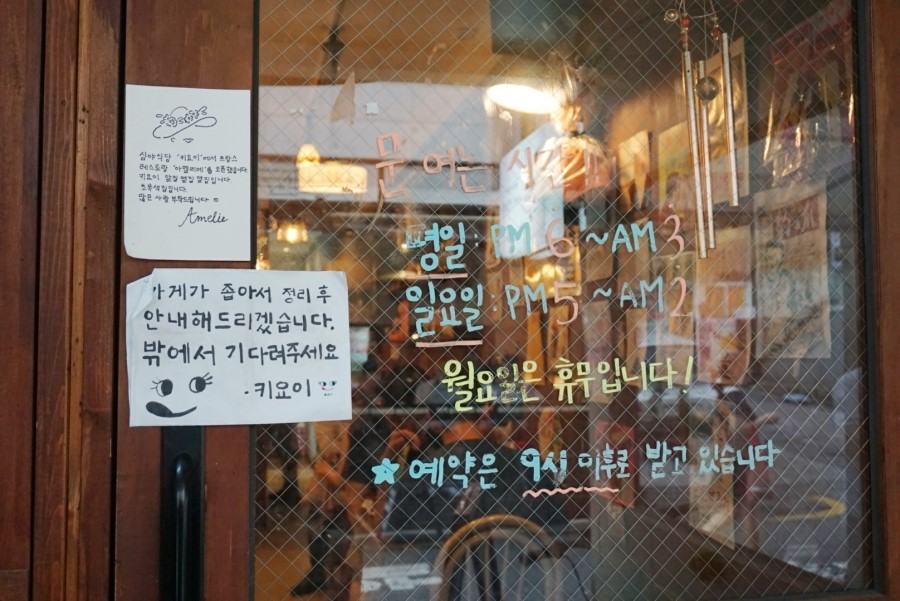 심야식당 '키요이'에서 프랑스
레스토랑 '아멜리에'를 오픈했습니다
키요이 앞집 옆집 옆집입니다
많은 사랑 부탁드립니다
Amelie
가게가 좁아서 정리 후
안내해드리겠습니다.
밖에서 기다려주세요
·키요이
문 여는 시간
평일: PM 6 ~ AM 3
일요일: PM 5 ~ AM 2
월요일은 휴무입니다!
★ 예약은 9시 이후로 받고 있습니다